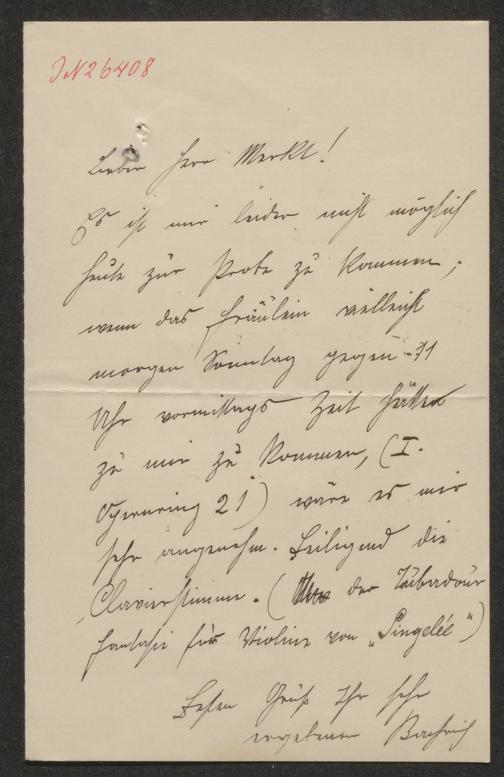 JN 26408
Lieber Herr Merkt!
Es ist mir leider nicht möglich
heute zur Probe zu kommen;
wenn das Fräulein vielleicht
morgen Sonntag gegen 11
Uhr vormittags Zeit hätte
zu mir zu kommen, (I.
Opernring 21) wäre es mir
sehr angenehm. Beiligend die
Clavierstimme. ( der Tubadour
Fantasie für Violine von „Singelée")
Besten Gruß Ihr sehr
ergebener Bachrich